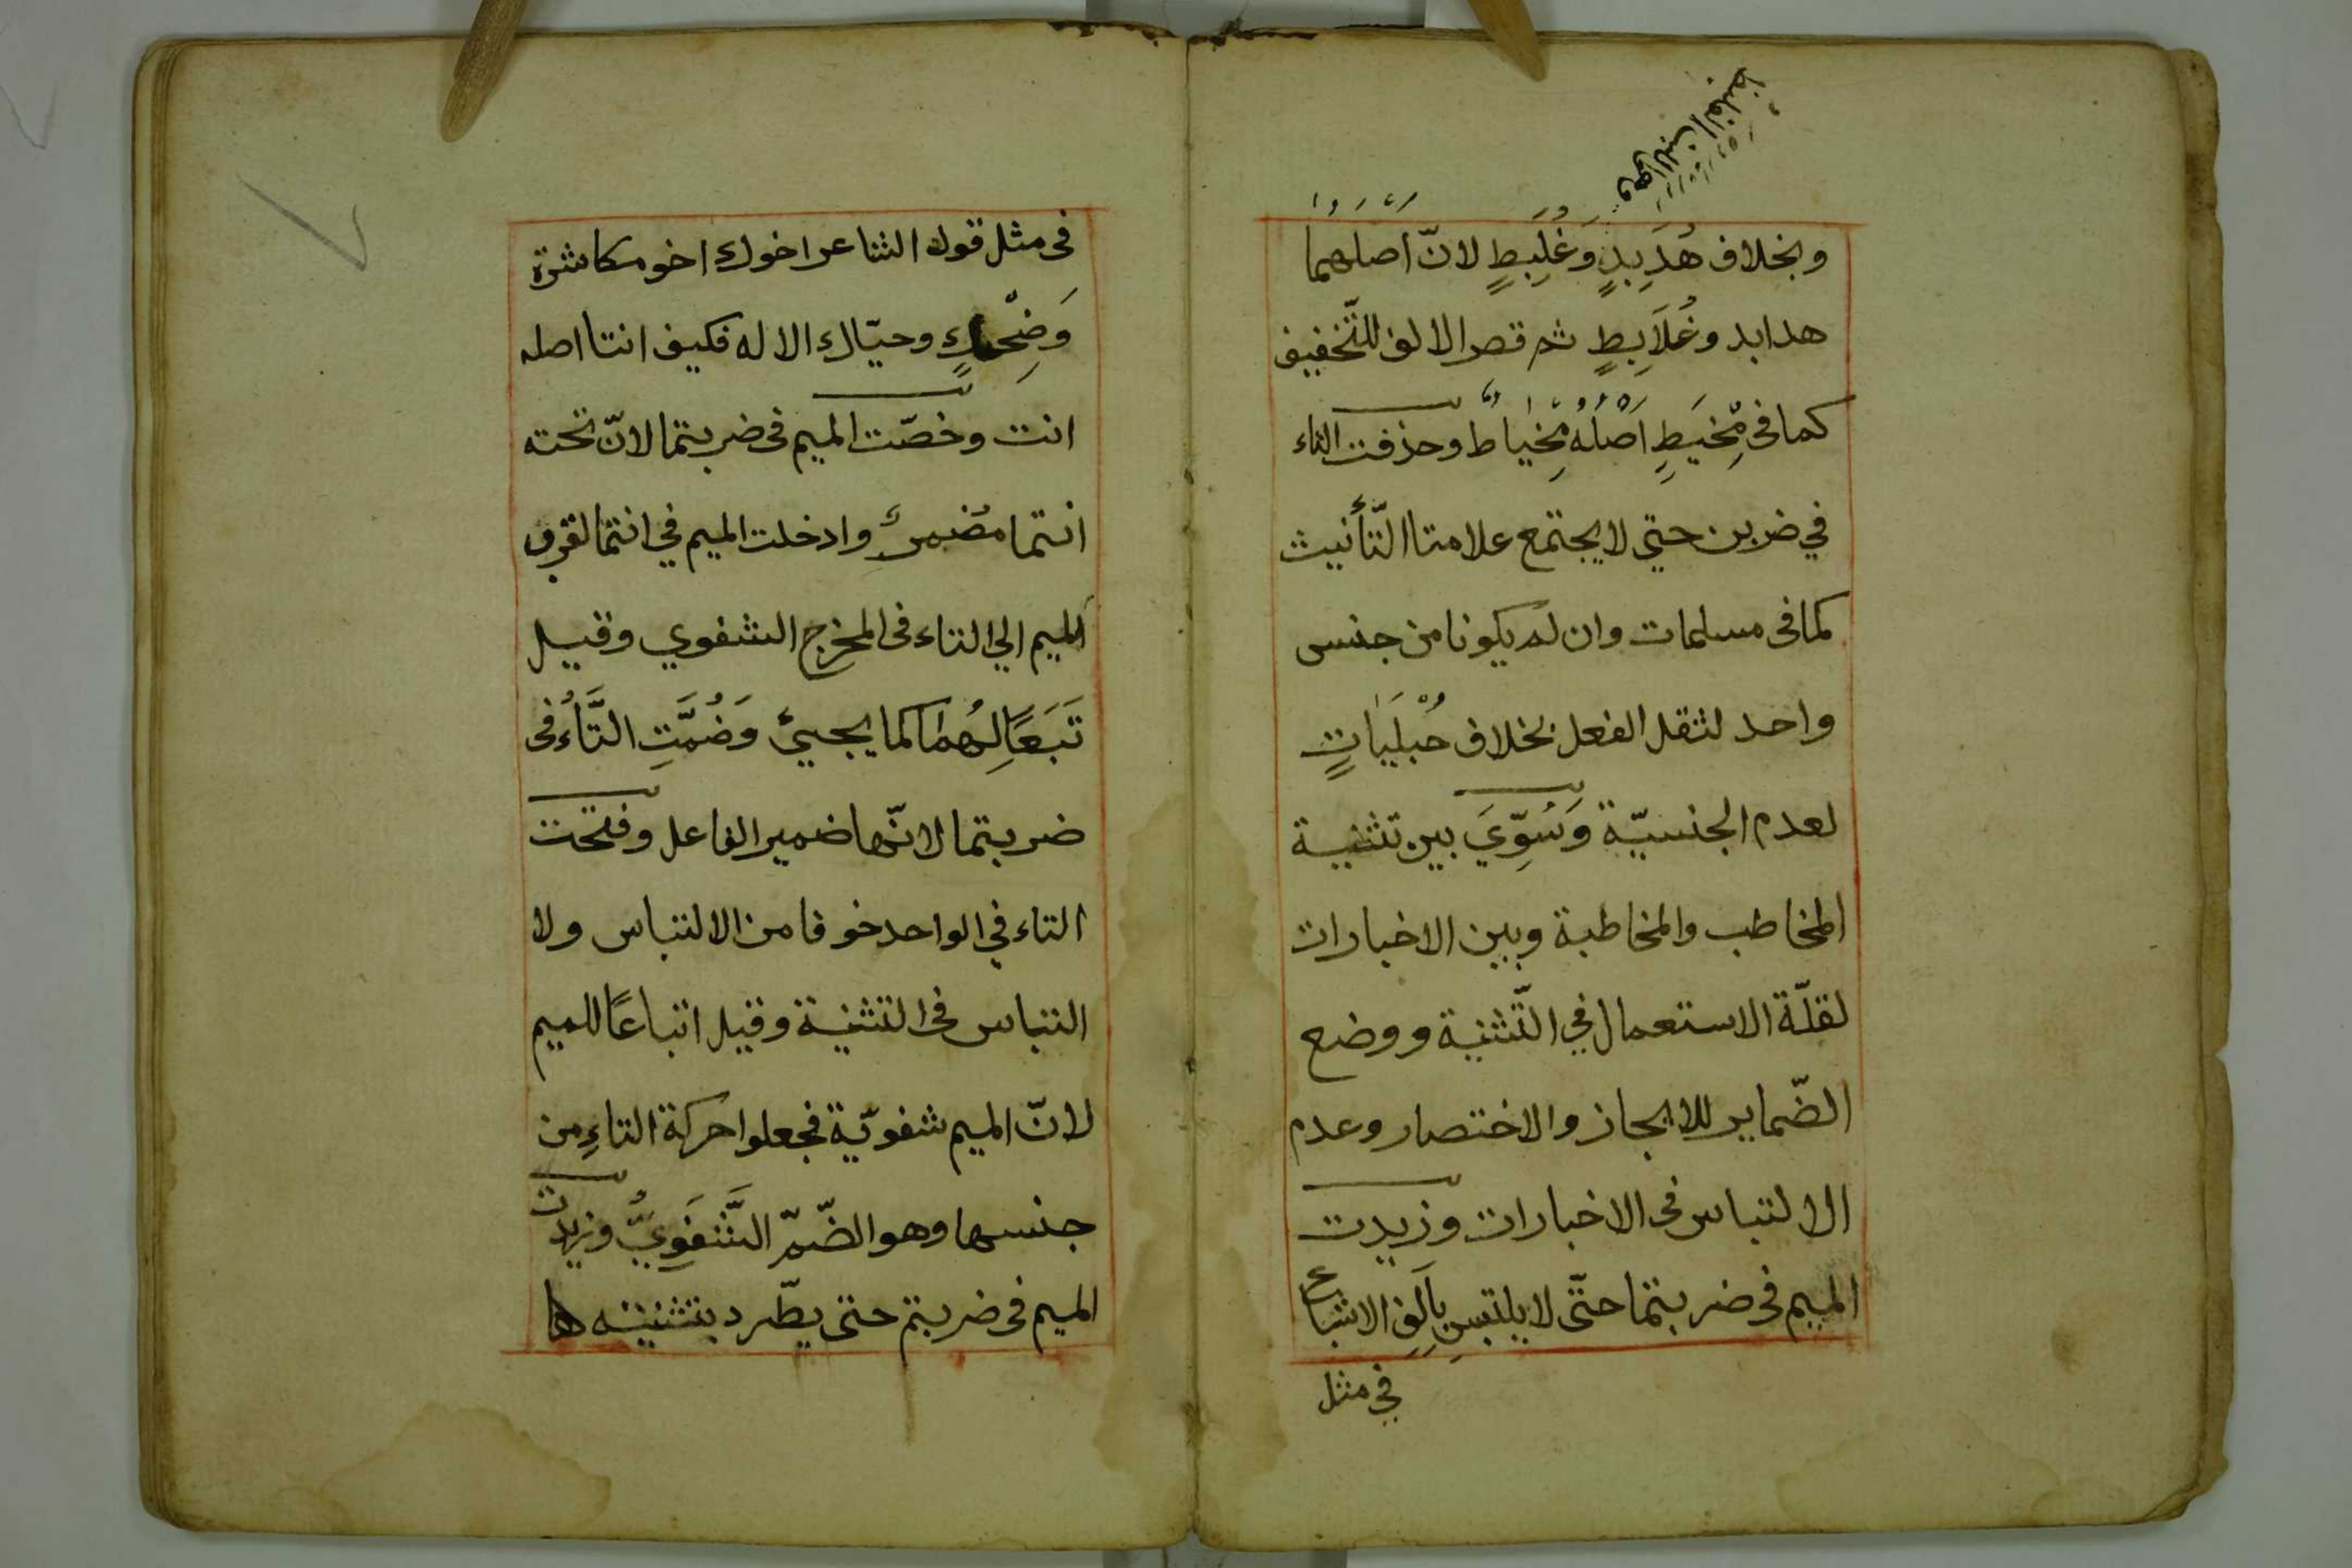 وهو اللبن الغليظ
وبخلاف هُدَبِدٍ وَغُلَبِطٍ لانّ اَصْلَهما
هدابد وغُلَابِطٍ ثم قصر الالف للتّخفيف
كما فى مِخْيَطٍ اَصْلُهُ مِخْياطٌ وحذفت التاء
في ضربن حتي لا يجتمع علامتا التّأنيث
كما فى مسلمات وان لم يكونا من جنس
واحد لثقل الفعل بخلاف حُبْلَيَاتٍ
لعدم الجنسيّة وَسُوِّيَ بين تثنية
المخاطب والمخاطبة وبين الاخبارات
لقلّة الاستعمال في التّثنية ووضع
الضّماير للايجاز والاختصار وعدم
الالتباس فى الاخبارات وزيدت
الميم فى ضربتما حتّى لا يلتبس بِاَلِفِ الاشباع
في مثل
فى مثل قول الشاعر اخوك اخو مكاشرة
وَضِحْكٍ وحيّاك الاله فكيف انتا اصله
انت وخصّت الميم فى ضربتما لانّ تحته
انتما مضمرٌ وادخلت الميم في انتما لقرب
الميم الي التاء فى المخرج الشفوي وقيل
تَبَعًا لِهُمَا كما يجيئ وَضُمَّتِ التَّاءُ فى
ضربتما لانّها ضمير الفاعل وفتحت
التاء في الواحد خوفا من الالتباس ولا
التباس فى التثنية وقيل اتباعًا للميم
لانّ الميم شفويّة فجعلوا حركة التاءِ من
جنسها وهو الضّمّ الشَّفَوِيُّ وزيدت
الميم فى ضربتم حتى يطّرد بتثنيته